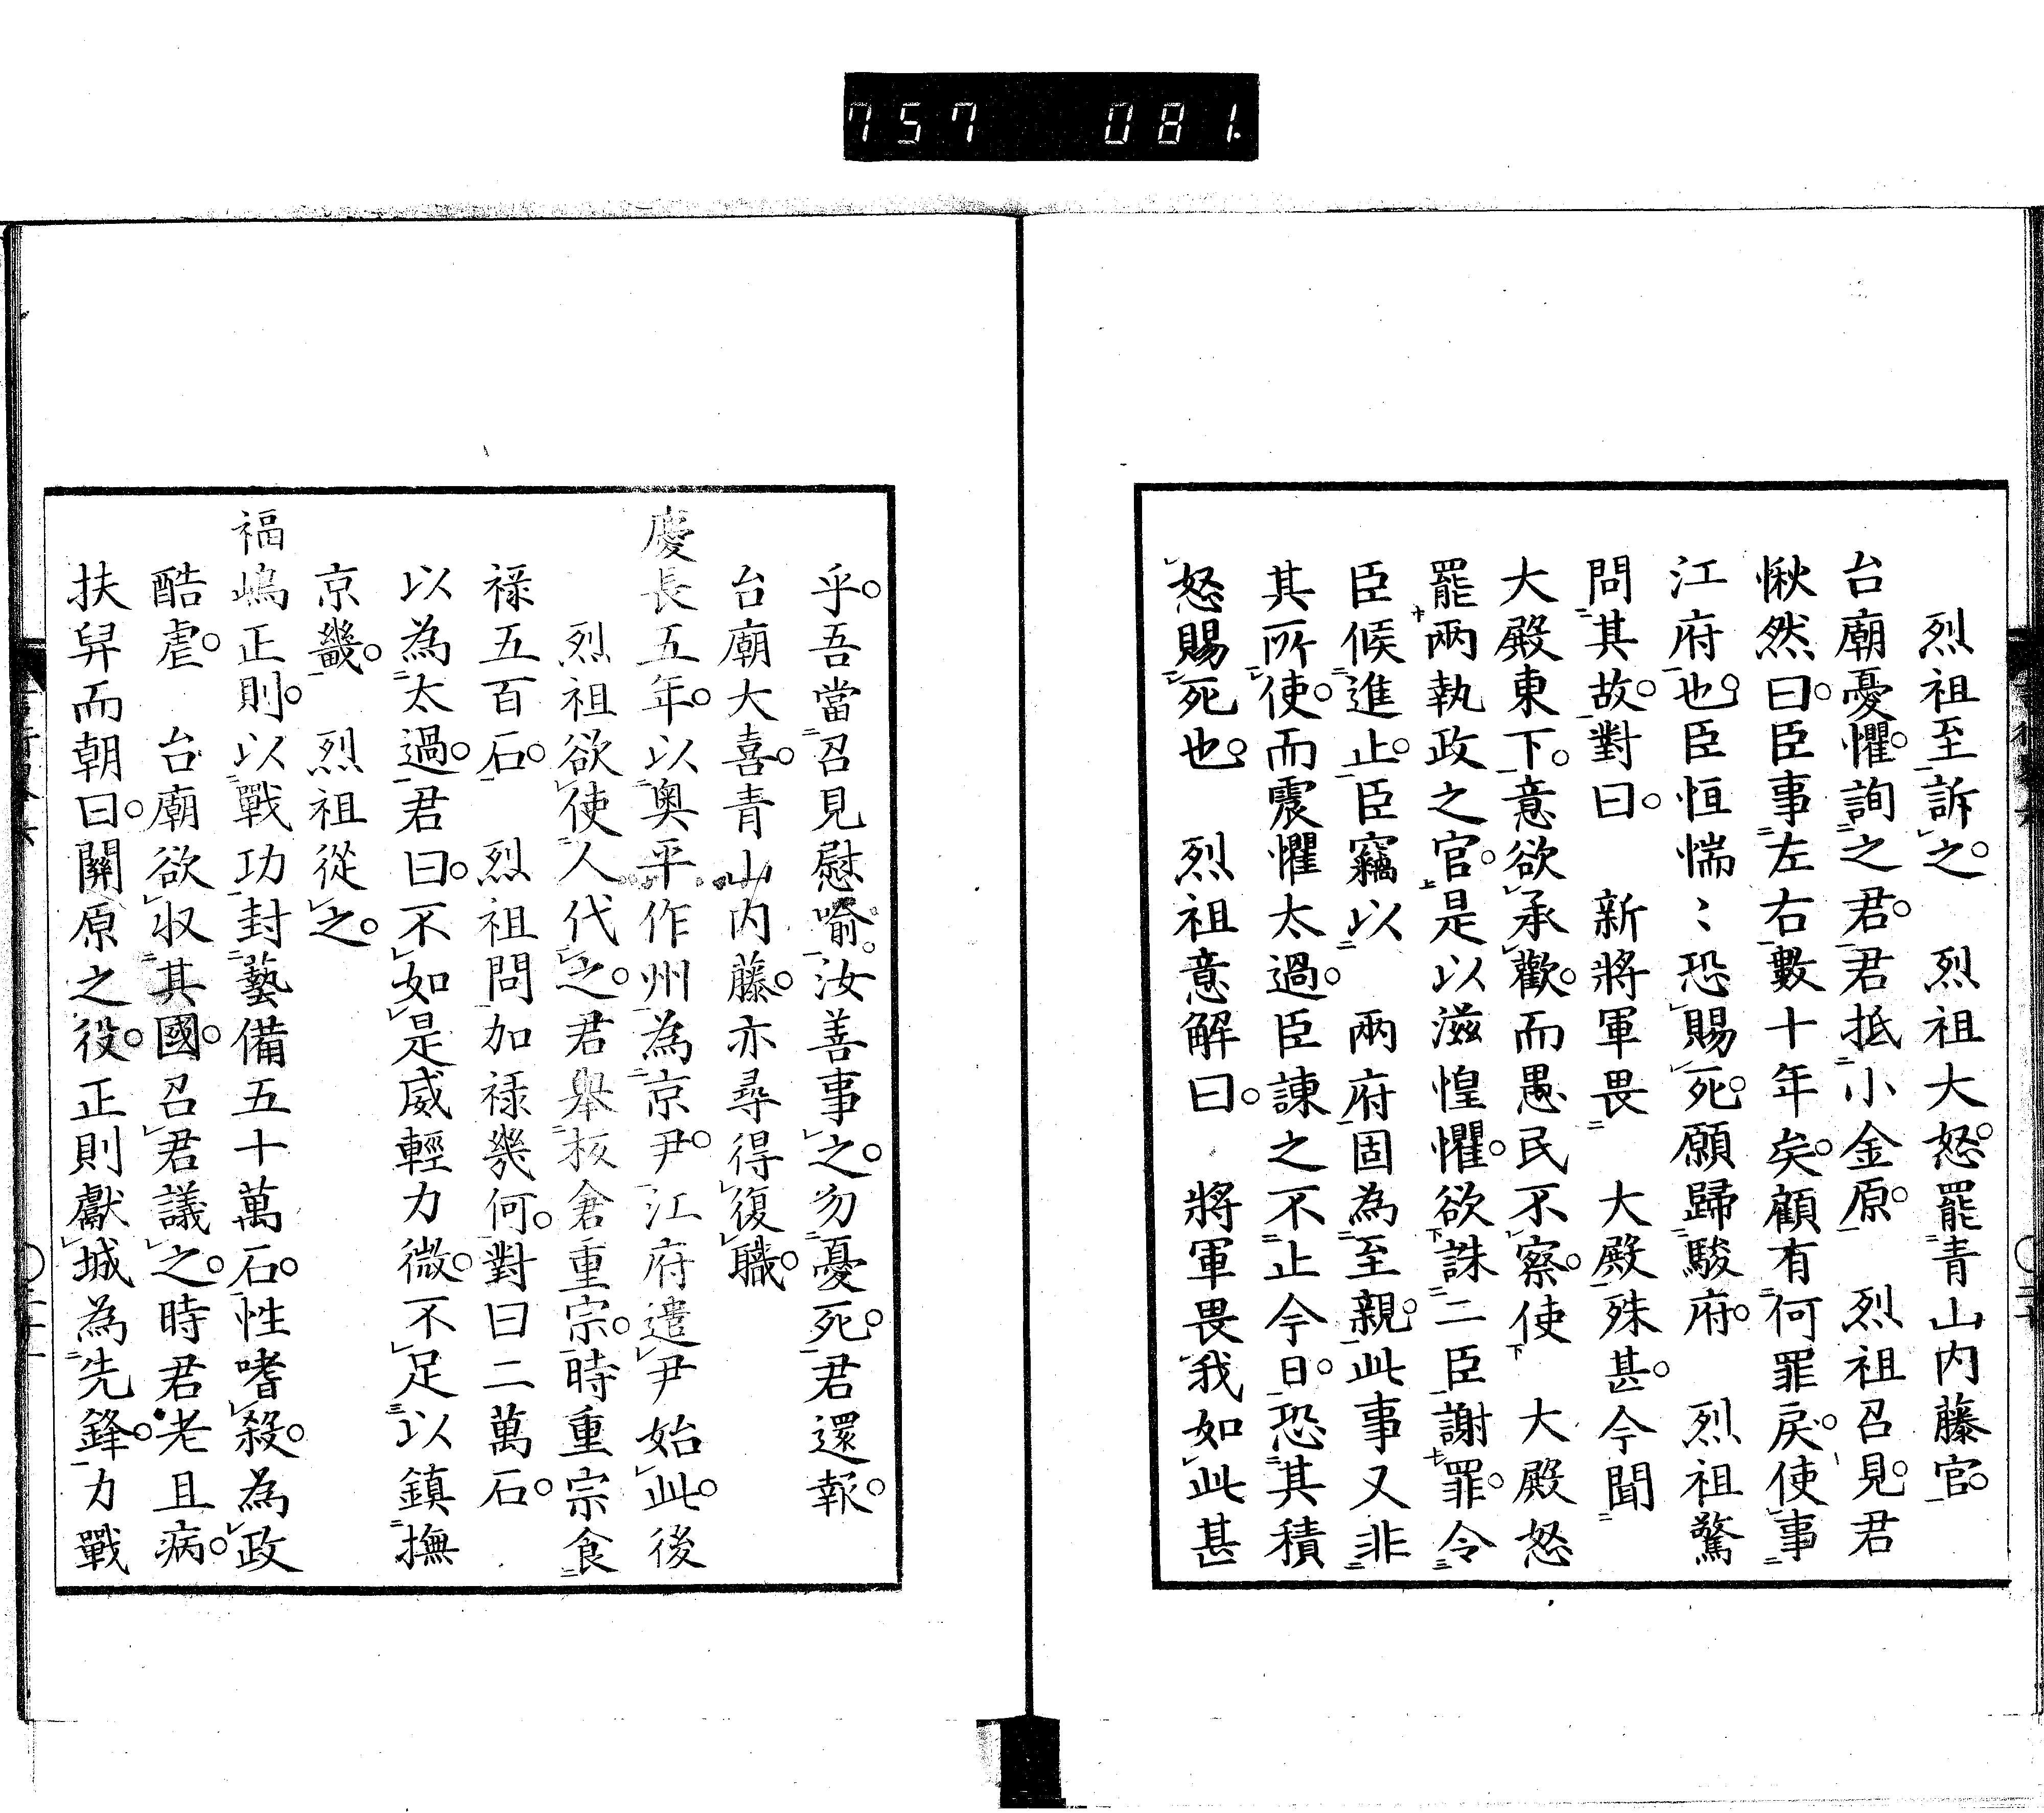 757 081.
烈祖至訴之。 烈祖大怒。罷青山内藤官。
台廟憂懼。詢之君。君抵小金原。 烈祖召見。君
愀然曰。臣事左右數十年矣。顧有何罪戾。使事
江府也。臣恒惴〻恐賜死。願歸駿府。 烈祖驚
問其故。對曰。 新將軍畏 大殿殊甚。今聞
大殿東下。意欲承歡。而愚民不察。使 大殿怒
罷兩執政之官。是以滋惶懼。欲誅二臣謝罪。令
臣候進止。臣竊以 兩府固為至親。此事又非
其所使。而震懼太過。臣諫之不止。今日。恐其積
怒賜死也。 烈祖意解曰。 將軍畏我如此甚
乎。吾當召見慰喻。汝善事之。勿憂死。君還報。
台廟大喜。青山内藤。亦尋得復職。
慶長五年。以奥平作州為京尹。江府遣尹始此。後
烈祖欲使人代之。君舉板倉重宗。時重宗食
祿五百石。 烈祖問加祿幾何。對曰二萬石。
以為太過。君曰。不如是威輕力微。不足以鎮撫
京畿。 烈祖從之。
福嶋正則。以戰功封藝備五十萬石。性嗜殺。為政
酷虐。 台廟欲収其國。召君議之。時君老且病。
扶舁而朝曰。關原之役。正則獻城為先鋒。力戰